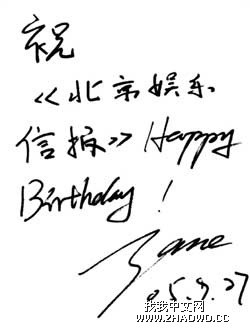 祝
《北京娱乐
信报》Happy
Birthday!
Jane
05.9.27
找我中文网
WWW.ZHAOWO.CC